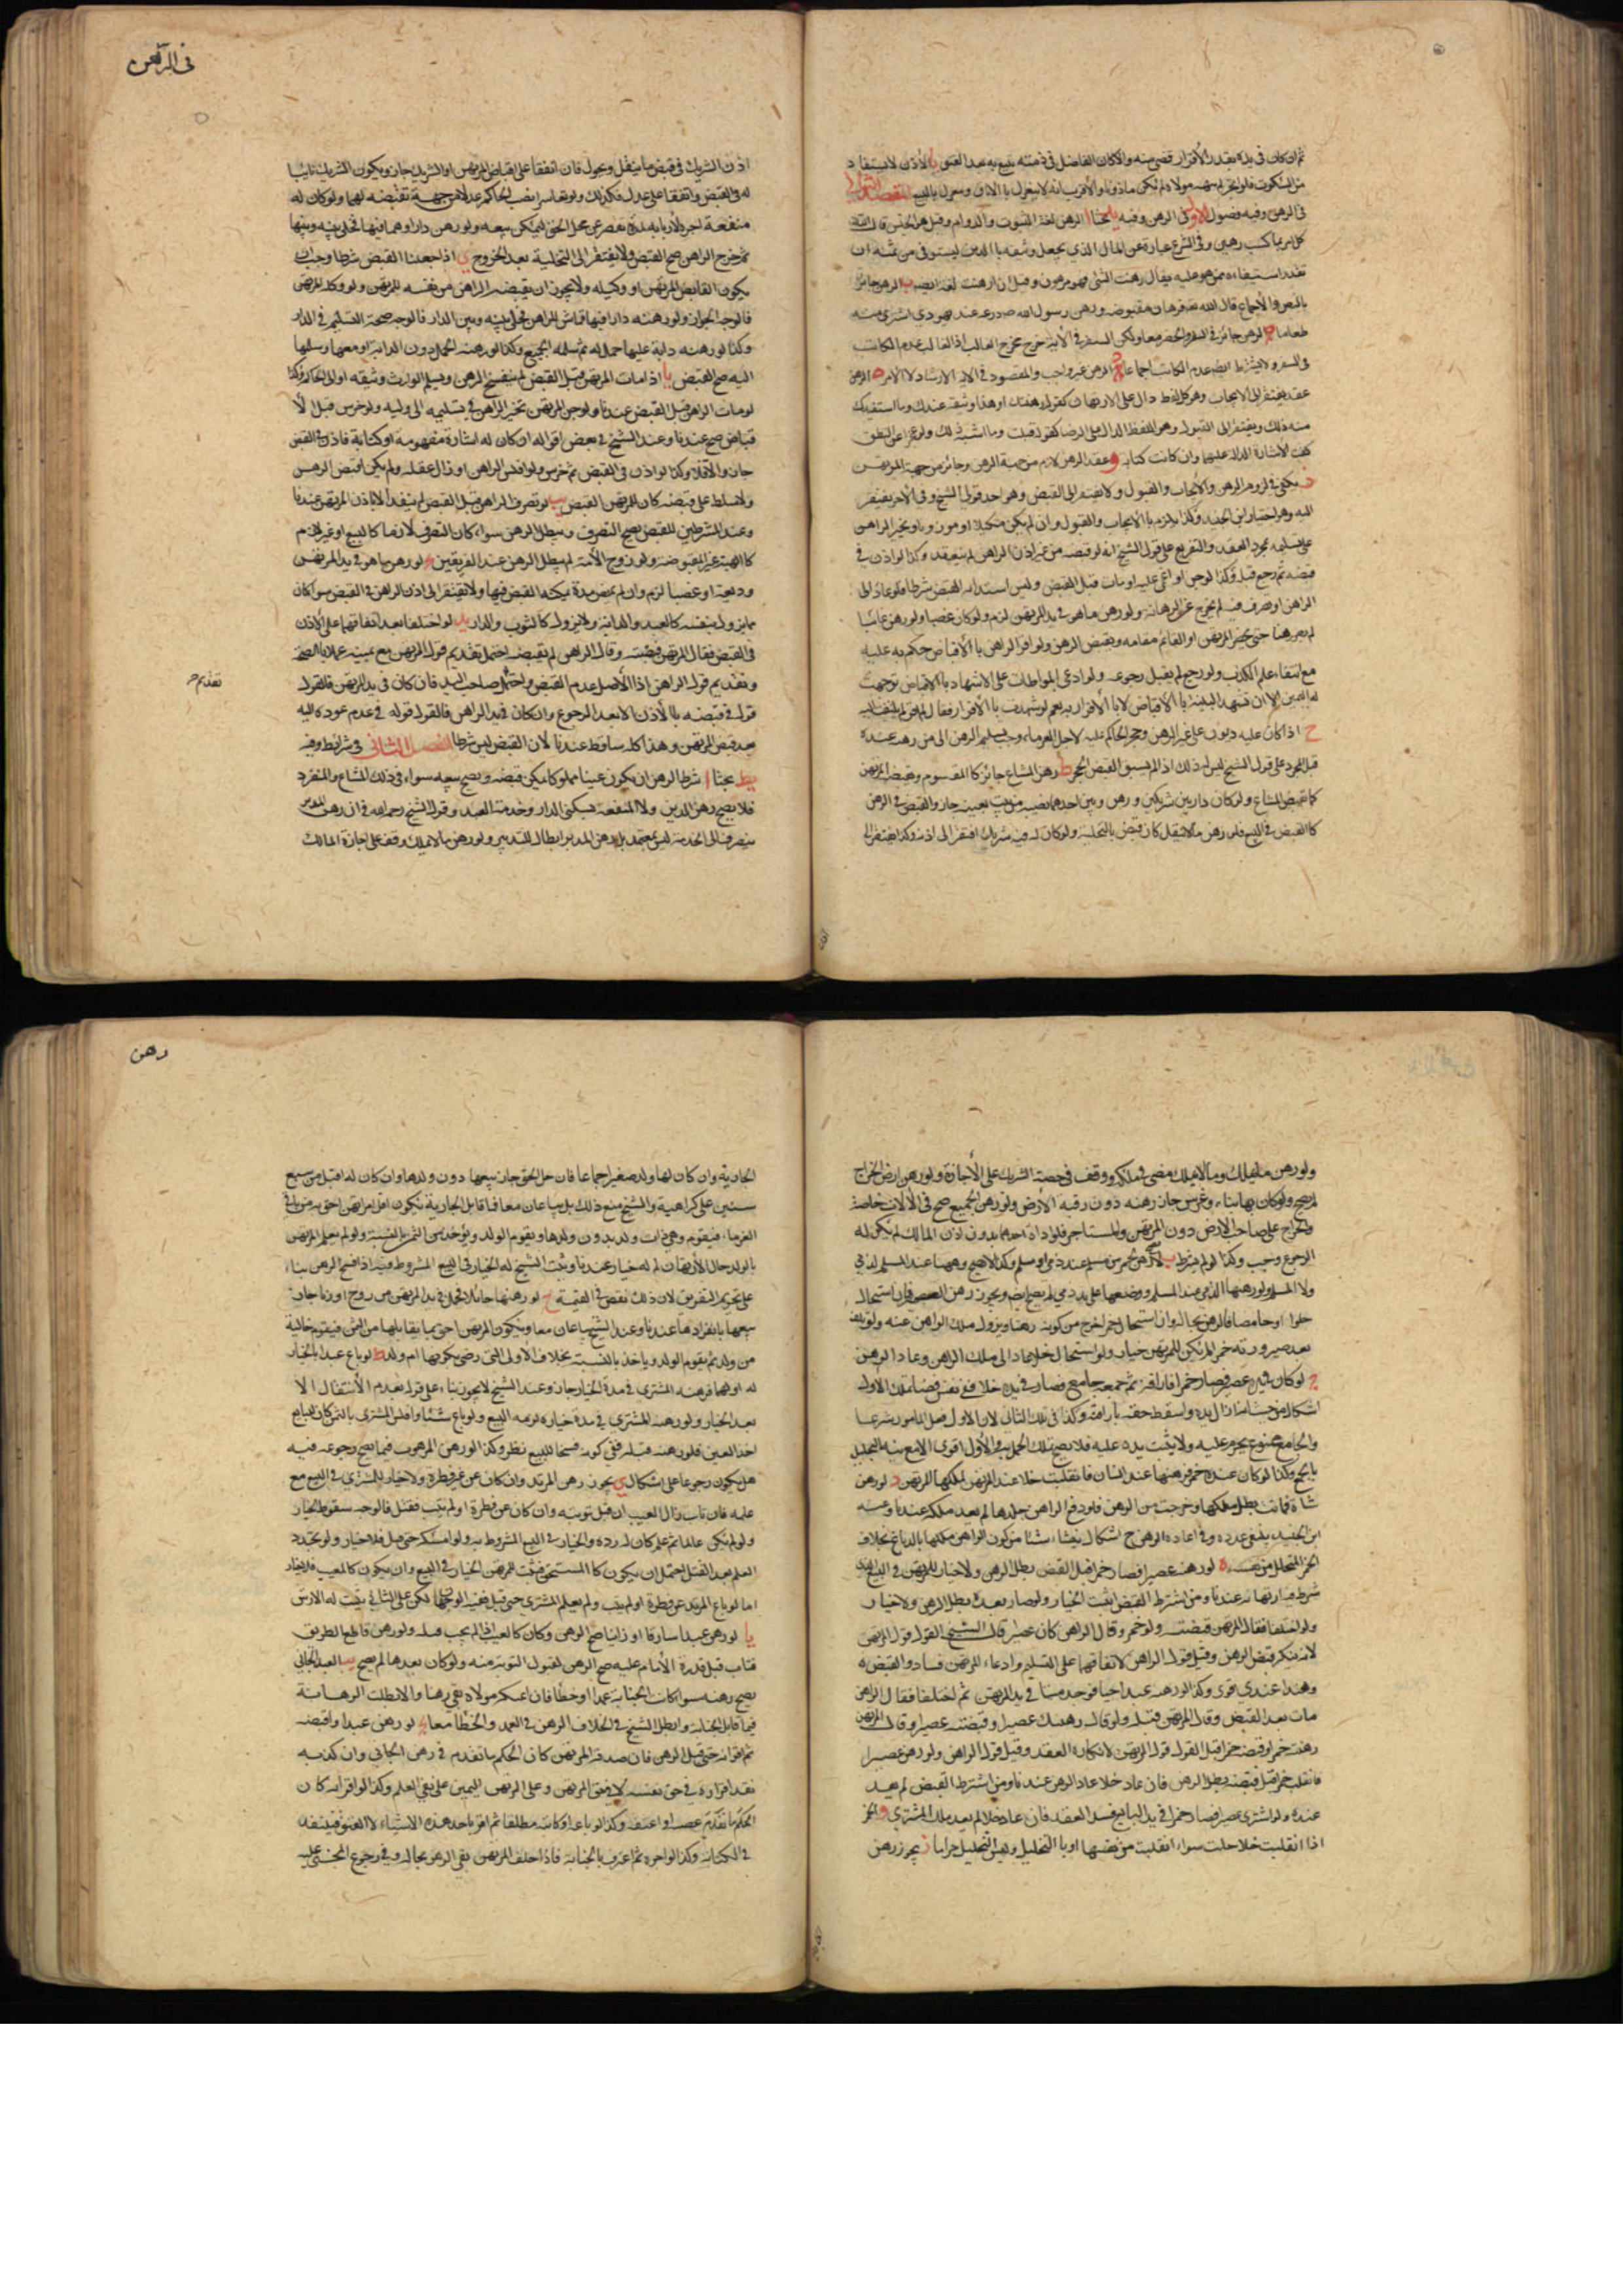 ثم ان كان فى يده بقدر الأقرار قضى منه والا كان الفاضل فى ذمته يتبع به بعد العتق يا الأذن لا يستفاد
من السكوت فلو لم ينهه مولاه لم يكن ماذونا والأقرب انه لا ينعزل بالاباق وينعزل بالبيع المقصد الثالث
فى الرهن وفيه فصول الأول فى الرهن وفيه بحثا ا الرهن لغة الثبوت والدوام وقيل هو الحبس قال الله
كل امرء بما كسب رهين وفى الشرع عبارة عن المال الذى يجعل وثيقة بالدين ليستوفى من ثمنه ان
تعذر استيفاءه ممن هو عليه يقال رهنت الشئ فهو مرهون وقيل ان ارهنت لغة ايضا ب الرهن جائز
بالنص والأجماع قال الله تعالى فرهان مقبوضة ورهن رسول الله ص درعه عند يهودى اشترى منه
طعاما ج الرهن جائز فى السفر والحضر معا وذكر السفر فى الأية خرج مخرج الغالب اذ الغالب عدم الكاتب
فى السفر ولا يشترط ايضا عدم الكاتب اجماعا د الرهن غير واجب والمقصود فى الاية الارشاد لا الامر ه الرهن
عقد يفتقر الى الايجاب وهو كل لفظ دال على الارتهان كقوله رهنتك او هذا وثيقة عندك وما استفيد
منه ذلك ويفتقر الى القبول وهو اللفظ الدال على الرضا كقوله قبلت وما اشبه ذلك ولو عجز عن النطق
كفت الاشارة الدالة عليهما وان كانت كتابة و عقد الرهن لازم من جهة الراهن وجائز من جهة المرتهن
ز يكفى فى لزوم الرهن الايجاب والقبول ولا يفتقر الى القبض وهو احد قولى الشيخ وفى الأخر يفتقر
اليه وهو اختيار ابن الجنيد وكذا يلزم بالايجاب والقبول وان لم يكن مكيلا او موزونا ويخير الراهن
على تسليمه بمجرد العقد والتفريع على قول الشيخ انه لو قبضه من غير اذن الراهن لم ينعقد وكذا لو اذن فى
قبضه ثم رجع قبله وكذا لو جن او اغمى عليه او مات قبل القبض وليس استدامة القبض شرطا فلو عاد الى
الراهن او تصرف فيه لم يخرج عن الرهانة ولو رهن ما هو فى يد المرتهن لزم ولو كان غصبا ولو رهن غائبا
لم يصر رهنا حتى يحضر المرتهن او القائم مقامه ويقبض الرهن ولو اقر الراهن بالأقباض حكم به عليه
مع انتفاء علم الكذب ولو رجع لم يقبل رجوعه ولو ادعى المواطات على الاشهاد بالاقباض توجهت
له اليمين الا ان تشهد البينة بالأقباض لا بالأقرار به نعم لو شهدت بالأقرار فقال لم اقر لم يلتفت اليه
ح اذا كان عليه ديون على غير الرهن وحجر الحاكم عليه لاجل الغرماء وجب تسليم الرهن الى من رهنه عنده
قبل الحجر وعلى قول الشيخ ليس له ذلك اذا لم يسبق القبض الحجر ط رهن المشاع جائز كالمقسوم ويقبض المرتهن
كما يقبض المشاع ولو كان دار بين شريكين ورهن احدهما نصيبه من بيت بعينه جاز والقبض فى الرهن
كالقبض فى البيع فلو رهن ما لا ينقل كان قبض بالتخلية ولو كان له فيه شريك افتقر الى اذنه وكذا يفتقر الى
فى الرهن
اذن الشريك فى قبض ما ينقل ويحول فان اتفقا على قباض المرتهن او الشريك جاز ويكون الشريك نائبا
له فى القبض وان اتفقا على عدل فكذلك ولو تعاسرا نصب الحاكم عدلا من جهته تقبضه لهما ولو كان له
منفعة اجره لأربابه مدة تقصر عن محل الحق ليمكن بيعه ولو رهن دارا وهما فيها فخلى بينه وبينها
ثم خرج الراهن صح القبض ولا يفتقر الى التخلية بعد الخروج ى اذا جعلنا القبض شرطا وجب ان
يكون القابض المرتهن او وكيله ولا يجوز ان يقبضه الراهن من نفسه للمرتهن ولو وكله المرتهن
فالوجه الجواز ولو رهنه دارا فيها قماش للراهن فخلى بينه وبين الدار فالوجه صحة التسليم فى الدار
وكذا لو رهنه دابة عليها حمل له ثم سلمه الجميع وكذا لو رهنه الحمل دون الدابة او معها وسلمها
اليه صح القبض يا اذا مات المرتهن قبل القبض لم ينفسخ الرهن ويسلم الوارث وثيقة او الى الحاكم وكذا
لو مات الراهن قبل القبض عندنا ولو جن المرتهن تخير الراهن فى تسليمه الى وليه ولو خرس قبل الا
قباض صح عندنا وعند الشيخ فى بعض اقواله ان كان له اشارة مفهومة او كتابة فاذن فى القبض
جاز والا فلا وكذا لو اذن فى القبض ثم خرس ولو افلس الراهن او زال عقله ولم يكن اقبض الرهن
ولا سلط على قبضه كان للمرتهن القبض يب لو تصرف الراهن قبل القبض لم ينفذ الا باذن المرتهن عندنا
وعند المشترطين للقبض يصح التصرف ويبطل الرهن سواء كان التصرف لازما كالبيع او غير لازم
كالهبة غير المقبوضة ولو زوج الأمة لم يبطل الرهن عند الفريقين يج لو رهن ما هو فى يد المرتهن
وديعة او غصبا لزم وان لم يمض مدة يمكنه القبض فيها ولا يفتقر الى اذن الراهن فى القبض سواء كان
مما يزول بنفسه كالعبد والدابة ولا يزول كالثوب والدار يد لو اختلفا بعد اتفاقهما على الأذن
فى القبض فقال المرتهن قبضت وقال الراهن لم تقبضه احتمل تقديم قول المرتهن مع يمينه عملا بالصحة
وتقديم قول الراهن اذ الأصل عدم القبض واحتمل صاحب اليد فان كان فى يد المرتهن فالقول
تقديم
قوله فى قبضه بالأذن لا بعد الرجوع وان كان فى يد الراهن فالقول قوله فى عدم عوده اليه
بعد قبض المرتهن وهذا كله ساقط عندنا لأن القبض ليس شرطا الفصل الثانى فى شرائطه وفيه
يط بحثا ا شرط الرهن ان يكون عينا مملوكا يمكن قبضه ويصح بيعه سواء فى ذلك المشاع والمنفرد
فلا يصح رهن الدين ولا المنفعة كسكنى الدار وخدمة العبد وقول الشيخ رحمه الله فى ان رهن المدبر
ينصرف الى الخدمة ليس بمعتمد بل رهن المدبر ابطال للتدبير ولو رهن ما لا يملك وقف على اجازة المالك
ولو رهن ما يملك وما لا يملك مضى فى ملكه ووقف فى حصة الشريك على الأجازة ولو رهن ارض الخراج
لم يصح ولو كان بها بناء وغرس جاز رهنه دون رقبة الارض ولو رهن الجميع صح فى الألات خاصة
والخراج على صاحب الارض دون المرتهن والمستاجر فلو اداه احدهما بدون اذن المالك لم يكن له
الرجوع ب لا يصح رهن الخمر من مسلم عند ذمى او مسلم وكذا لا يصح رهنها عند المسلم لذمى
ولا المسلم ولو رهنها الذمى عند المسلم ووضعها على يد ذمى لم يصح ايضا ويجوز رهن العصير فان استحال
خلوا او حامضا فالرهن بحاله وان استحال خمرا خرج من كونه رهنا ويزول ملك الراهن عنه ولو تلف
بعد صيرورته خمرا لم يكن للمرتهن خيار ولو استحال خلا عاد الى ملك الراهن وعاد الرهن
ج لو كان فى يده عصير فصار خمرا فاراقه ثم جمعه جامع فصار فى يده خلا ففى تملك الاول
اشكال من حيث انه زال يده واسقط حقه باراقته وكذا فى تملك الثانى لان الاول فعل المامور شرعا
والجامع ممنوع يحرم عليه ولا يثبت يده عليه
وكذا لو كان عنده خمر فرهنها عند انسان فانقلبت خلا عند المرتهن ملكها المرتهن د لو رهن
شاة فماتت بطل ملكها وخرجت من الرهن فلو دبغ الراهن جلدها لم يعد ملكه عندنا وعند
ابن الجنيد ينبغى عدده وفى اعادة الرهن ح اشكال ينشاء من كون الراهن ملكها بالدباغ بخلاف
الخمر المتخلل من نفسه ه لو رهنه عصيرا فصار خمرا قبل القبض بطل الرهن ولا خيار للمرتهن فى البيع الذى
شرط فيه ارتهانه عندنا ومن اشترط القبض اثبت الخيار ولو صار بعده بطل الرهن ولا خيار
ولو اختلفا فقال المرتهن قبضته وهو خمر وقال الراهن كان عصيرا قال الشيخ القول قول المرتهن
لانه ينكر قبض الرهن وقيل قول الراهن لاتفاقهما على التسليم وادعاء المرتهن فساد القبض ه
وهذا عندى قوى وكذا لو رهنه عبدا حيا فوجد ميتا فى يد المرتهن ثم اختلفا فقال الراهن
مات بعد القبض وقال المرتهن قبله ولو قال رهنتك عصيرا وقبضته عصيرا وقال المرتهن
رهنته خمرا وقبضته خمرا قبل القول قول المرتهن لانكاره العقد وقيل قول الراهن ولو رهن عصيرا
فانقلب خمرا قبل قبضه بطل الرهن فان عاد خلا عاد الرهن عندنا ومن اشترط القبض لم يعد
عنده ولو اشترى عصيرا فصار خمرا فى يد البايع فسد العقد فان عاد خلا لم يعد ملك المشترى و الخمر
اذا انقلبت خلا حلت سواء انقلبت من نفسها او بالتخليل وليس التخليل حراما ز يجوز رهن
رهن
الجارية وان كان لها ولد صغير اجماعا فان حل الحق جاز بيعها دون ولدها وان كان له اقل من سبع
سنين على كراهية والشيخ منع ذلك بل يباعان معا فما قابل الجارية يكون المرتهن احق به من باقى
الغرماء فيقوم وهى ذات ولد بدون ولدها ويقوم الولد ويؤخذ من الثمر بالنسبة ولو لم يعلم المرتهن
بالولد حال الارتهان لم له خيار عندنا ويثبت الشيخ له الخيار فى البيع المشروط فيه اذا فسخ الرهن بناء
على تحريم التفريق لان ذلك نقص فى القيمة ح لو رهنها حائلا فحملت فى يد المرتهن من زوج او زنا جاز
بيعها بانفرادها عندنا وعند الشيخ يباعان معا ويكون المرتهن احق بما يقابلها من الثمن فيقوم خالية
من ولد ثم يقوم الولد وياخذ بالنسبة بخلاف الاولى التى رضى بكونها ام ولد ط لو باع عبدا بالخيار
له او لهما فرهنه المشترى فى مدة الخيار جاز وعند الشيخ لا يجوز بناء على قوله بعدم الأنتقال الا
بعد الخيار ولو رهنه المشترى فى مدة خياره لزمه البيع ولو باع شيئا وافلس المشترى بالثمن كان للبايع
اخذ العين فلو رهنه قبله ففى كونه فسخا للبيع نظر وكذا لو رهن الموهوب فيما يصح رجوعه فيه
هل يكون رجوعا على اشكال ى يجوز رهن المرتد وان كان عن غير فطرة ولا خيار للمشترى فى البيع مع
علمه فان تاب زال العيب ان قبل توبته وان كان عن فطرة او لم يتب فقتل فالوجه سقوط الخيار
ولو لم يكن عالما ثم علم كان له رده والخيار فى البيع المشروط به ولو امسكه حتى قتل فلا خيار ولو تجدد
العلم بعد القتل احتمل ان يكون كالمستحق فيثبت للمرتهن الخيار فى البيع وان يكون كالمعيب فلا خيار
اما لو باع المرتد عن فطرة او لم يتب ولم يعلم المشترى حتى قتل ففيه الوجهان لكن على الثانى يثبت له الارش
يا لو رهن عبدا سارقا او زانيا صح الرهن وكان كالعيب اذا لم يجب قتله ولو رهن قاطع الطريق
فتاب قبل قدرة الأمام عليه صح الرهن لقبول التوبة منه ولو كان بعدها لم يصح يب العبد الجانى
يصح رهنه سواء كانت الجناية عمدا او خطأ فان افتكه مولاه بقى رهنا والا بطلت الرهانة
فيما قابل الجناية وابطل الشيخ فى الخلاف الرهن فى العمد والخطأ معا يج لو رهن عبدا واقبضه
ثم اقر انه جنى قبل الرهن فان صدقه المرتهن كان الحكم ما تقدم فى رهن الجانى وان كذبه
نفذ اقراره فى حق نفسه لا فى حق المرتهن وعلى المرتهن اليمين على نفى العلم وكذا لو اقر انه كان
الحكم ما تقدم غصبه او اعتقه وكذا لو باعه او كاتبه مطلقا ثم اقر باحد هذه الاشياء لا العتق فينفذ
فى الكتابة وكذا لو اجره ثم اعترف بالجناية فاذا حلف المرتهن بقى الرهن بحاله وفى رجوع المجنى عليه